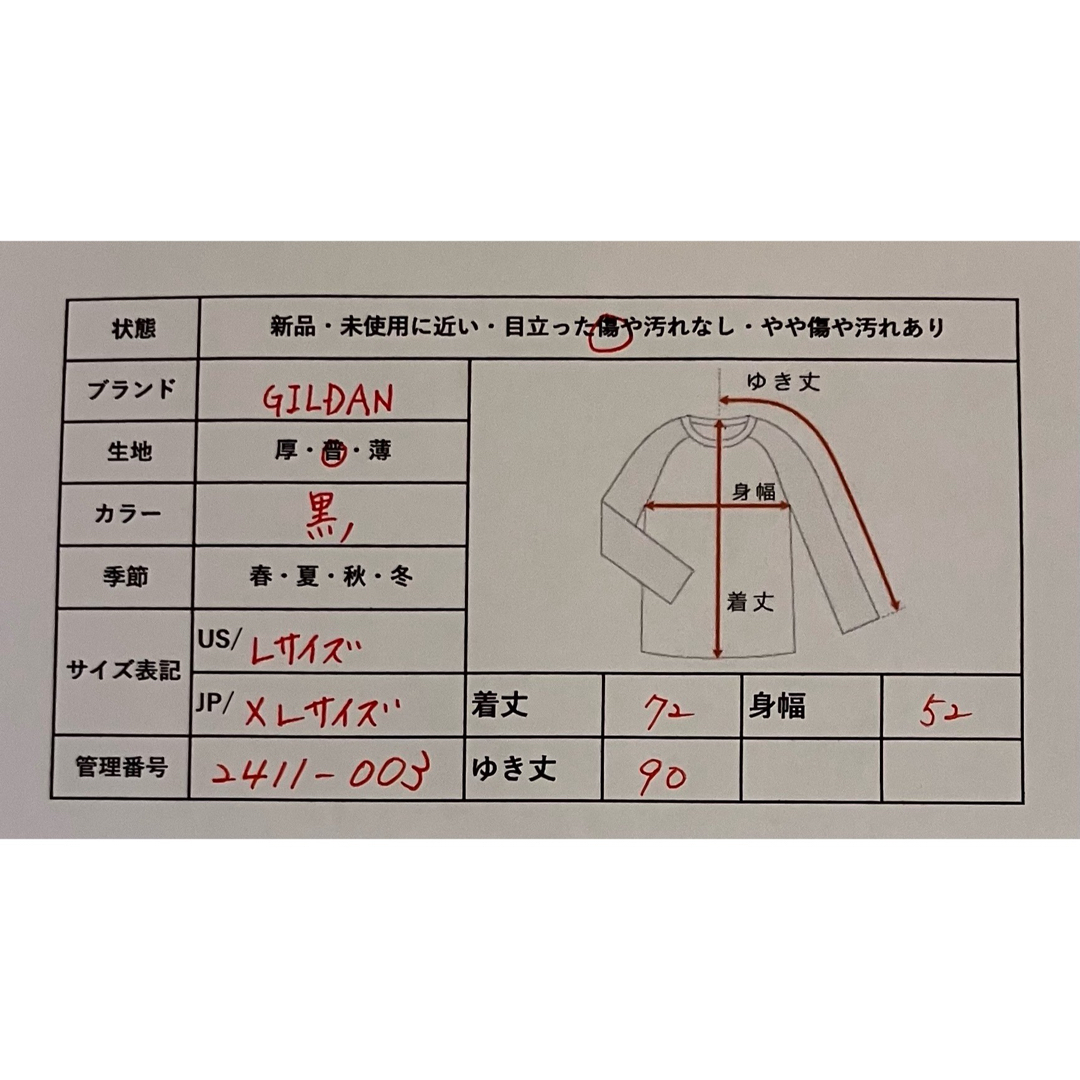 状態 新品・未使用に近い・目立った傷や汚れなし・やや傷や汚れあり
ブランド GILDAN
ゆき丈
生地 厚・普・薄
身幅
カラー 黒
季節 春・夏・秋・冬
着丈
サイズ表記
US/ Lサイズ
JP/ XLサイズ 着丈 72 身幅 52
管理番号 2411-003 ゆき丈 90